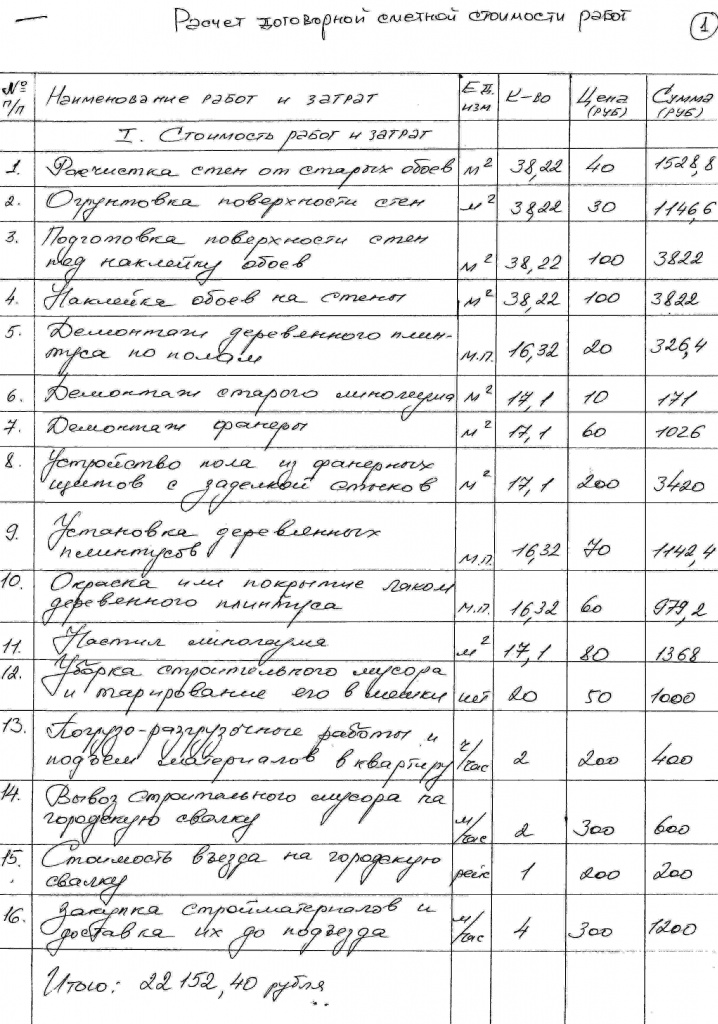 Расчет договорной сметной стоимости работ
1
№ п/п Наименование работ и затрат Ед. изм К-во Цена (руб) Сумма (руб)
I. Стоимость работ и затрат
1. Расчистка стен от старых обоев м² 38,22 40 1528,8
2. Огрунтовка поверхности стен м² 38,22 30 1146,6
3. Подготовка поверхности стен
под наклейку обоев м² 38,22 100 3822
4. Наклейка обоев на стены м² 38,22 100 3822
5. Демонтаж деревянного плин-
туса по полам м.п. 16,32 20 326,4
6. Демонтаж старого линолеума м² 17,1 10 171
7. Демонтаж фанеры м² 17,1 60 1026
8. Устройство пола из фанерных
щитов с заделкой стыков м² 17,1 200 3420
9. Установка деревянных
плинтусов м.п. 16,32 70 1142,4
10. Окраска или покрытие лаком
деревянного плинтуса м.п. 16,32 60 979,2
11. Настил линолеума м² 17,1 80 1368
12. Уборка строительного мусора
и тарирование его в мешки шт 20 50 1000
13. Погрузо-разгрузочные работы и
подъем материалов в квартиру ч/час 2 200 400
14. Вывоз строительного мусора на
городскую свалку м/час 2 300 600
15. Стоимость въезда на городскую
свалку рейс 1 200 200
16. Закупка стройматериалов и
доставка их до подъезда м/час 4 300 1200
Итого: 22 152,40 рубля